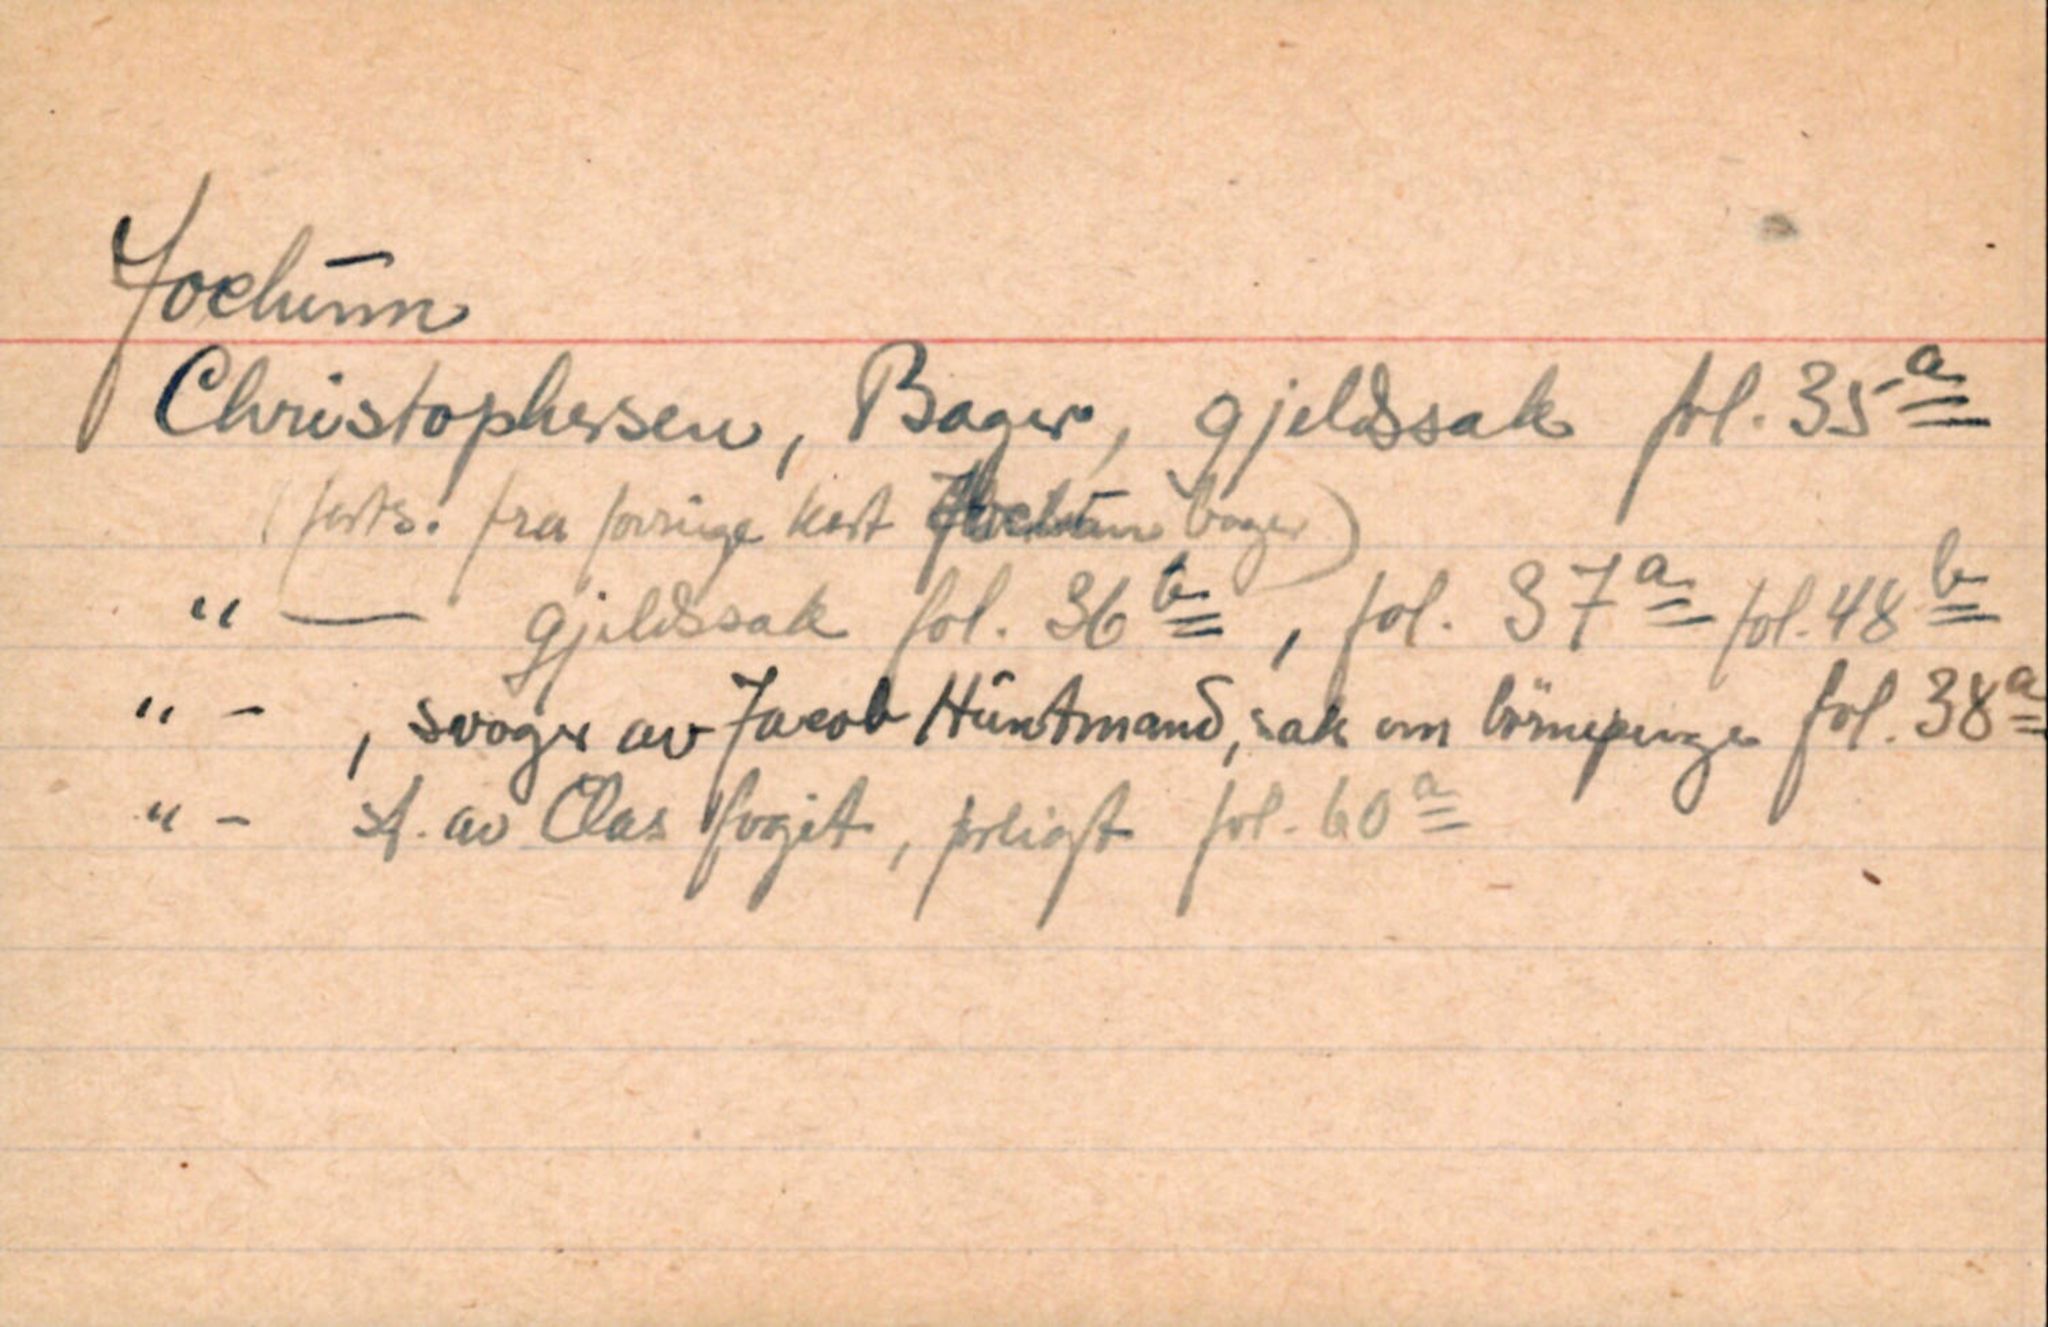 Jochum
Christophersen, Bager, gjeldssak fol. 35 a
(forts. fra forrige kort Jochum bager)
" — gjeldssak fol. 36 b, fol. 37 a fol. 48 b
" - , svoger av Jacob Huntmand, sak om börnepenge fol. 38 a
" - st. av Clas fogit, forligt fol. 60 a